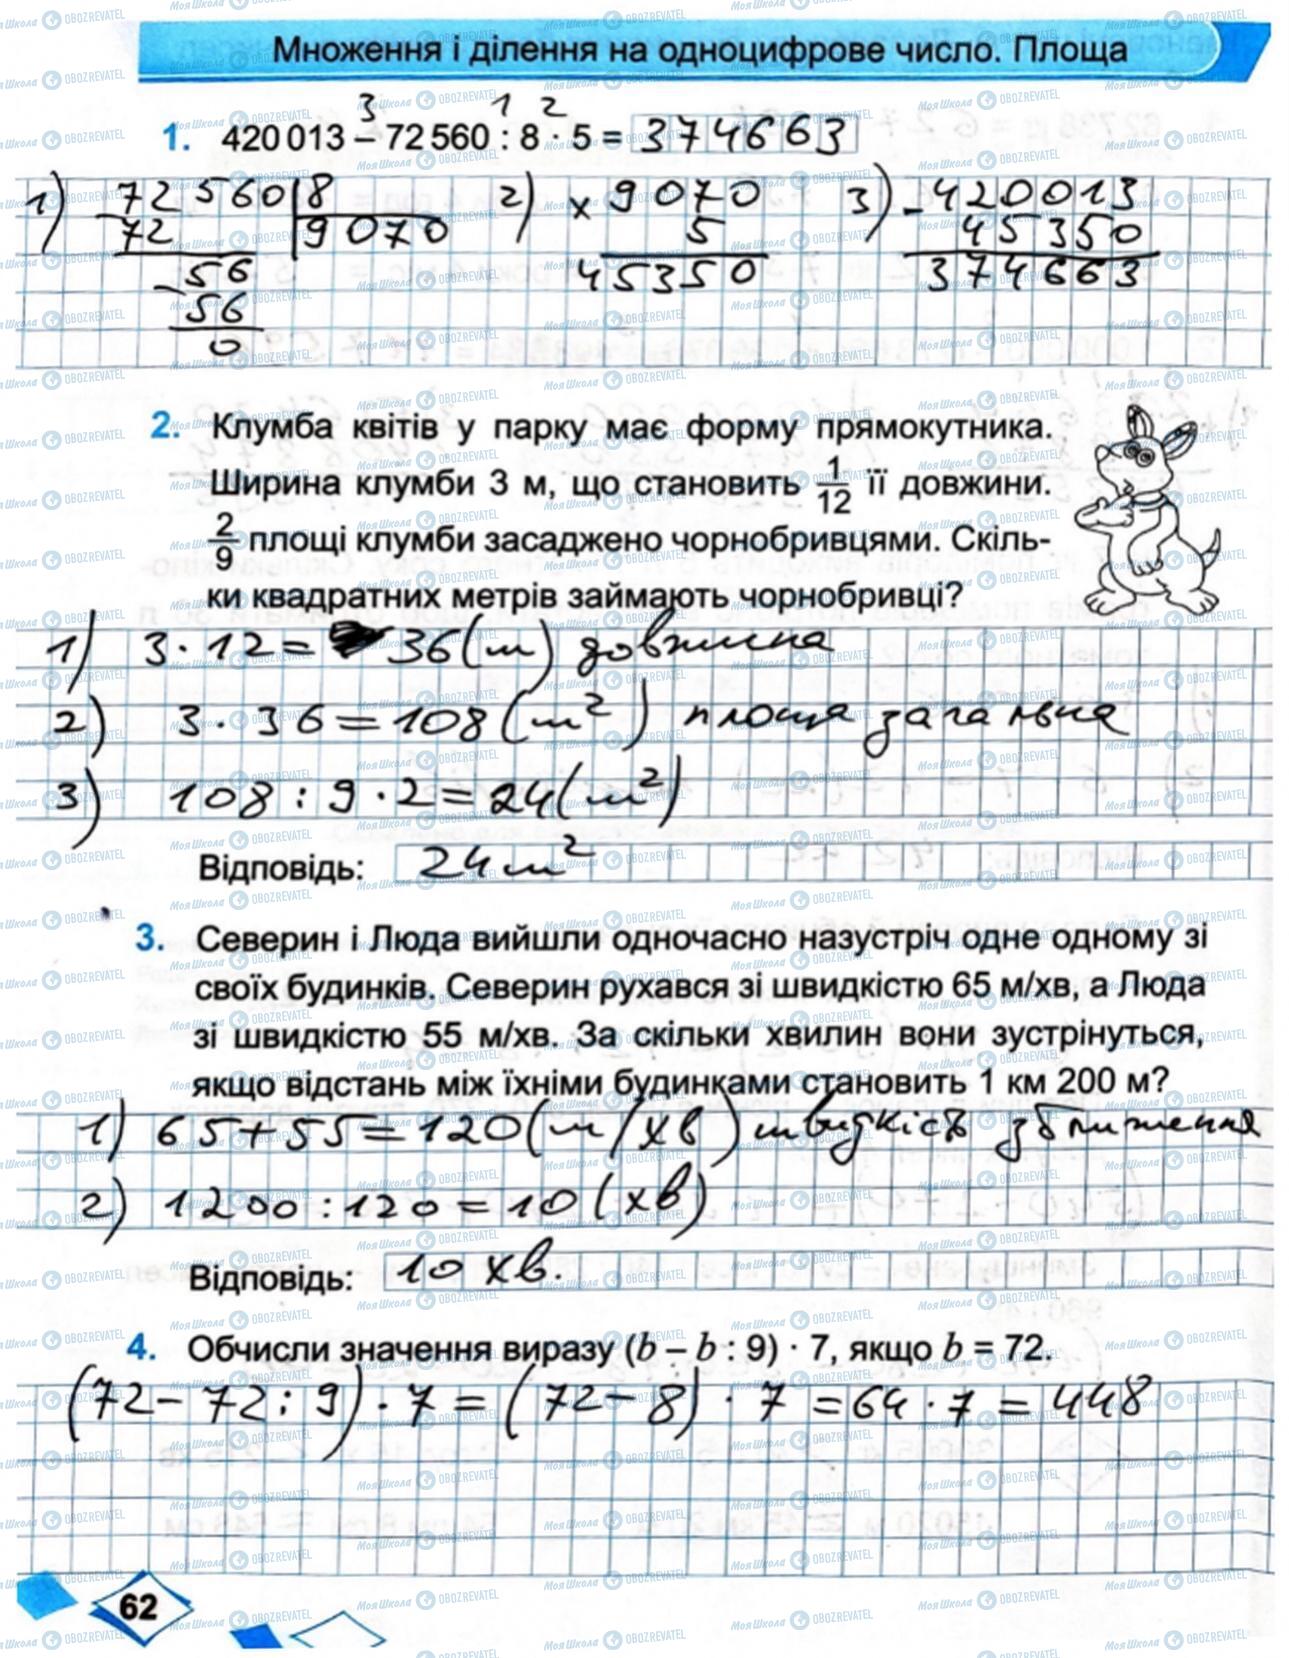 Множення і ділення на одноцифрове число. Площа
3 1 2
1. 420 013 – 72 560 : 8 · 5 = 374663
1) 72560 | 8 2) × 9070 3) - 420013
- 72 9070 5 45350
- 56 45350 374663
56
0
2. Клумба квітів у парку має форму прямокутника.
Ширина клумби 3 м, що становить 1/12 її довжини.
2/9 площі клумби засаджено чорнобривцями. Скіль-
ки квадратних метрів займають чорнобривці?
1) 3 · 12 = 36 (м) довжина
2) 3 · 36 = 108 (м²) площа загальна
3) 108 : 9 · 2 = 24 (м²)
Відповідь: 24 м²
3. Северин і Люда вийшли одночасно назустріч одне одному зі
своїх будинків. Северин рухався зі швидкістю 65 м/хв, а Люда
зі швидкістю 55 м/хв. За скільки хвилин вони зустрінуться,
якщо відстань між їхніми будинками становить 1 км 200 м?
1) 65 + 55 = 120 (м/хв) швидкість зближення
2) 1200 : 120 = 10 (хв)
Відповідь: 10 хв.
4. Обчисли значення виразу (b – b : 9) · 7, якщо b = 72.
(72 – 72 : 9) · 7 = (72 – 8) · 7 = 64 · 7 = 448
62
Моя Школа OBOZREVATEL